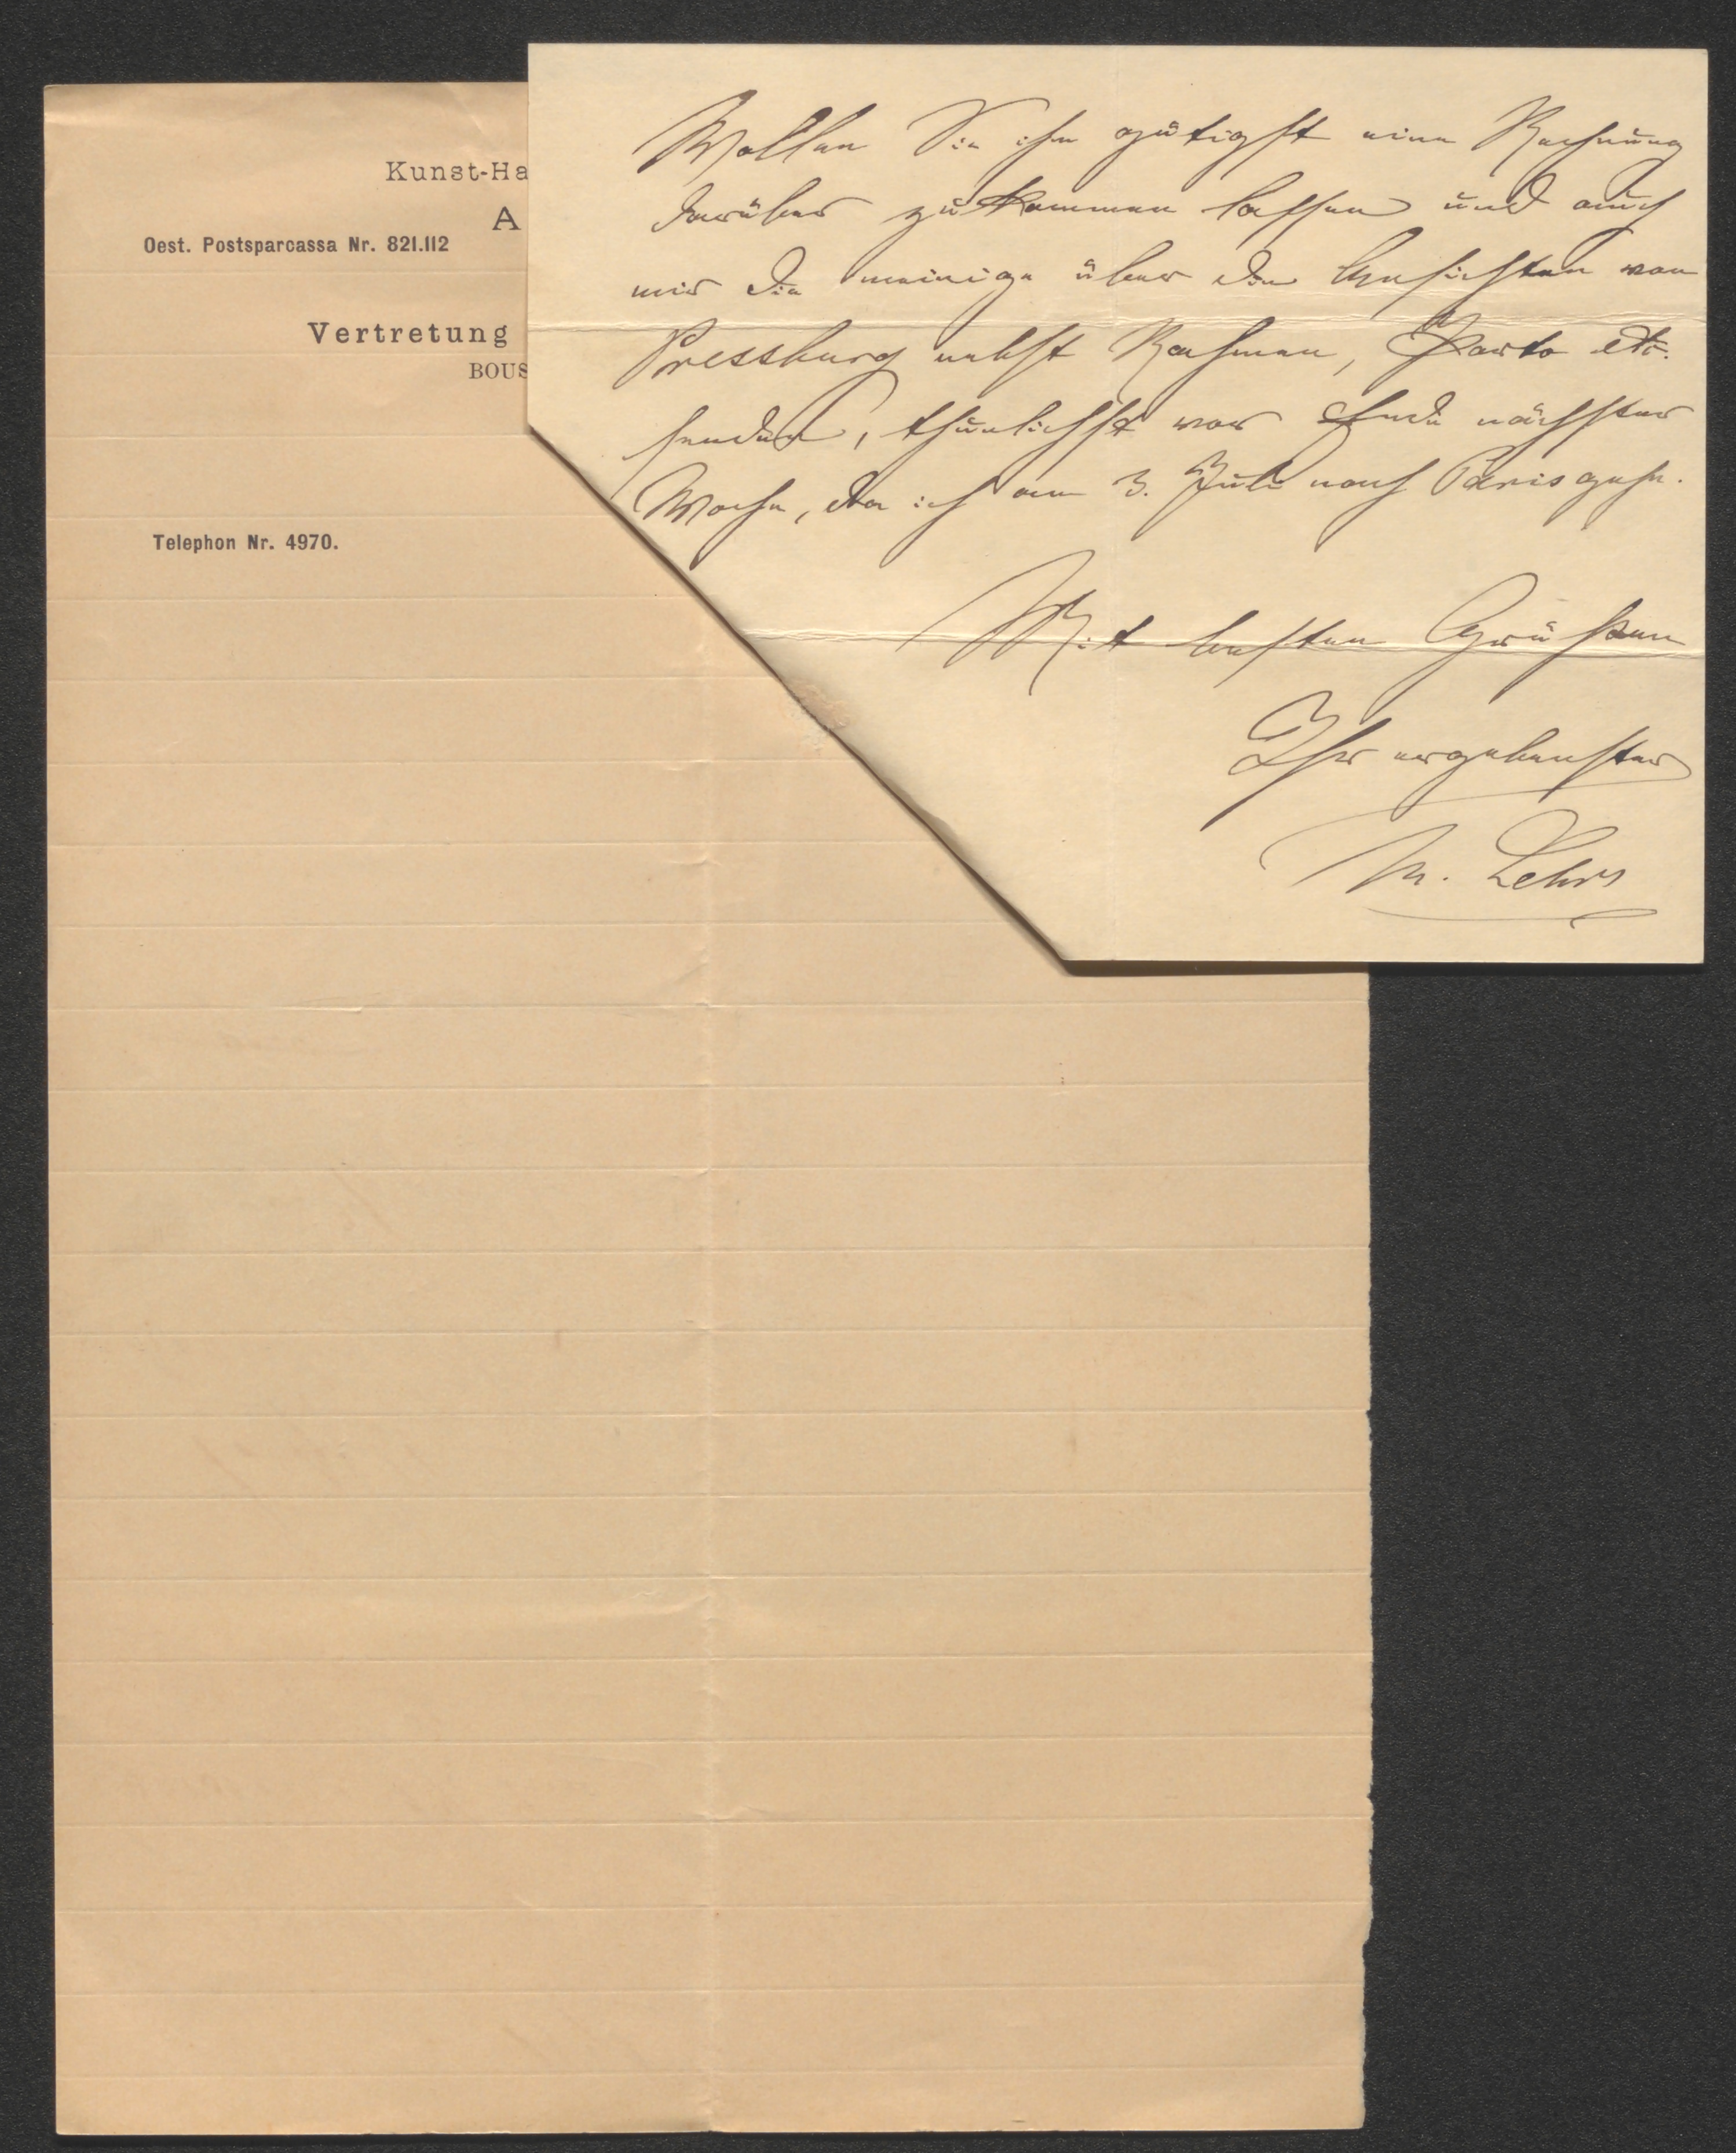 Kunst-Ha
A
Oest. Postsparcassa Nr. 821.112
Vertretung
BOUS
Telephon Nr. 4970.
Wollen Sie ihm gütigst eine Rechnung
darüber zukommen lassen und auch
mir die meinige über die Ansichten von
Pressburg nebst Rahmen, Porto etc.
senden, thunlichst vor Ende nächster
Woche, da ich am 3. Juli nach Paris gehe.
Mit besten Grüßen
Ihr ergebenster
M. Lehrs